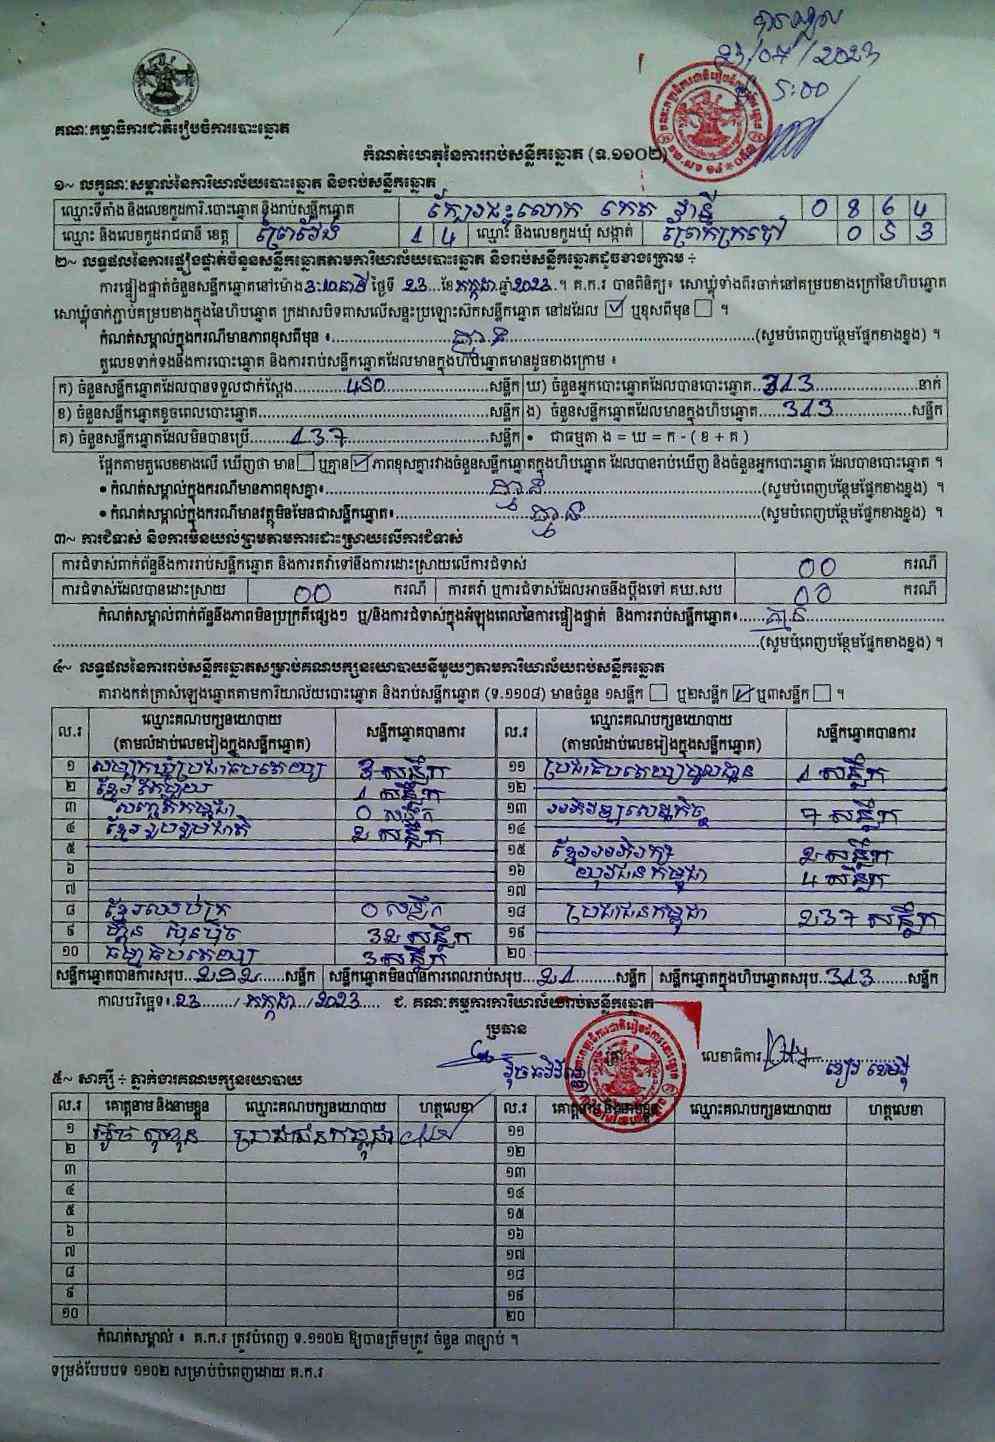 23/07/2023
5:00
គណៈកម្មាធិការជាតិរៀបចំការបោះឆ្នោត
កំណត់ហេតុនៃការរាប់សន្លឹកឆ្នោត (ទ.១១០២)
១~ លក្ខណៈសម្គាល់នៃការិយាល័យបោះឆ្នោត និងរាប់សន្លឹកឆ្នោត
ឈ្មោះទីតាំង និងលេខកូដការិ.បោះឆ្នោត និងរាប់សន្លឹកឆ្នោត 0864
ឈ្មោះ និងលេខកូដរាជធានី ខេត្ត ព្រៃវែង 14 ឈ្មោះ និងលេខកូដឃុំ សង្កាត់ 053
២~ លទ្ធផលនៃការផ្ទៀងផ្ទាត់ចំនួនសន្លឹកឆ្នោតតាមការិយាល័យបោះឆ្នោត និងរាប់សន្លឹកឆ្នោតដូចខាងក្រោម ÷
ការផ្ទៀងផ្ទាត់ចំនួនសន្លឹកឆ្នោតនៅម៉ោង 3:10នាទី ថ្ងៃទី 23 ខែ កក្កដា ឆ្នាំ2023 ។ គ.ក.រ បានពិនិត្យ៖ សោឃ្លុំទាំងពីរចាក់នៅគម្របខាងក្រៅនៃហិបឆ្នោត
សោឃ្លុំចាក់ភ្ជាប់គម្របខាងក្នុងនៃហិបឆ្នោត ក្រដាសបិទពាសលើសន្ទះប្រឡោះស៊កសន្លឹកឆ្នោត នៅដដែល ☑ ឬខុសពីមុន ☐ ។
កំណត់សម្គាល់ក្នុងករណីមានភាពខុសពីមុន ៖ គ្មាន (សូមបំពេញបន្ថែមផ្នែកខាងខ្នង) ។
តួលេខទាក់ទងនឹងការបោះឆ្នោត និងការរាប់សន្លឹកឆ្នោតដែលមានក្នុងហិបឆ្នោតមានដូចខាងក្រោម ៖
ក) ចំនួនសន្លឹកឆ្នោតដែលបានទទួលជាក់ស្តែង 450 សន្លឹក ឃ) ចំនួនអ្នកបោះឆ្នោតដែលបានបោះឆ្នោត 313 នាក់
ខ) ចំនួនសន្លឹកឆ្នោតខូចពេលបោះឆ្នោត សន្លឹក ង) ចំនួនសន្លឹកឆ្នោតដែលមានក្នុងហិបឆ្នោត 313 សន្លឹក
គ) ចំនួនសន្លឹកឆ្នោតដែលមិនបានប្រើ 137 សន្លឹក • ជាធម្មតា ង = ឃ = ក - ( ខ + គ )
ផ្អែកតាមតួលេខខាងលើ ឃើញថា មាន ☐ ឬគ្មាន ☑ ភាពខុសគ្នារវាងចំនួនសន្លឹកឆ្នោតក្នុងហិបឆ្នោត ដែលបានរាប់ឃើញ និងចំនួនអ្នកបោះឆ្នោត ដែលបានបោះឆ្នោត ។
• កំណត់សម្គាល់ក្នុងករណីមានភាពខុសគ្នា៖ គ្មាន (សូមបំពេញបន្ថែមផ្នែកខាងខ្នង) ។
• កំណត់សម្គាល់ក្នុងករណីមានវត្ថុមិនមែនជាសន្លឹកឆ្នោត៖ គ្មាន (សូមបំពេញបន្ថែមផ្នែកខាងខ្នង) ។
៣~ ការជំទាស់ និងការមិនយល់ព្រមតាមការដោះស្រាយលើការជំទាស់
ការជំទាស់ពាក់ព័ន្ធនឹងការរាប់សន្លឹកឆ្នោត និងការតវ៉ាទៅនឹងការដោះស្រាយលើការជំទាស់ 00 ករណី
ការជំទាស់ដែលបានដោះស្រាយ 00 ករណី ការតវ៉ា ឬការជំទាស់ដែលអាចនឹងប្តឹងទៅ គឃ.សប 00 ករណី
កំណត់សម្គាល់ពាក់ព័ន្ធនឹងភាពមិនប្រក្រតីផ្សេងៗ ឬ/និងការជំទាស់ក្នុងអំឡុងពេលនៃការផ្ទៀងផ្ទាត់ និងការរាប់សន្លឹកឆ្នោត៖ គ្មាន
(សូមបំពេញបន្ថែមផ្នែកខាងខ្នង) ។
៤~ លទ្ធផលនៃការរាប់សន្លឹកឆ្នោតសម្រាប់គណបក្សនយោបាយនីមួយៗតាមការិយាល័យរាប់សន្លឹកឆ្នោត
តារាងកត់ត្រាសំឡេងឆ្នោតតាមការិយាល័យបោះឆ្នោត និងរាប់សន្លឹកឆ្នោត (ទ.១១០៨) មានចំនួន ១សន្លឹក ☐ ឬ២សន្លឹក ☑ ឬ៣សន្លឹក ☐ ។
ល.រ ឈ្មោះគណបក្សនយោបាយ (តាមលំដាប់លេខរៀងក្នុងសន្លឹកឆ្នោត) សន្លឹកឆ្នោតបានការ ល.រ ឈ្មោះគណបក្សនយោបាយ (តាមលំដាប់លេខរៀងក្នុងសន្លឹកឆ្នោត) សន្លឹកឆ្នោតបានការ
១ សម្បុកឃ្មុំប្រជាធិបតេយ្យ 3 សន្លឹក ១១ ប្រជាធិបតេយ្យមូលដ្ឋាន 1 សន្លឹក
២ ខ្មែរតែមួយ 1 សន្លឹក ១២
៣ សញ្ជាតិកម្ពុជា 0 សន្លឹក ១៣ អភិវឌ្ឍសេដ្ឋកិច្ច 7 សន្លឹក
៤ ខ្មែររួបរួមជាតិ 2 សន្លឹក ១៤
៥ ១៥ ខ្មែរអភិរក្ស 2 សន្លឹក
៦ ១៦ យុវជនកម្ពុជា 4 សន្លឹក
៧ ១៧
៨ ខ្មែរឈប់ក្រ 0 សន្លឹក ១៨ ប្រជាជនកម្ពុជា 237 សន្លឹក
៩ ហ៊្វុនស៊ិនប៉ិច 32 សន្លឹក ១៩
១០ ធម្មាធិបតេយ្យ 3 សន្លឹក ២០
សន្លឹកឆ្នោតបានការសរុប 292 សន្លឹក សន្លឹកឆ្នោតមិនបានការពេលរាប់សរុប 21 សន្លឹក សន្លឹកឆ្នោតក្នុងហិបឆ្នោតសរុប 313 សន្លឹក
កាលបរិច្ឆេទ៖ 23 / កក្កដា / 2023 ជ. គណៈកម្មការការិយាល័យរាប់សន្លឹកឆ្នោត
ប្រធាន
លេខាធិការ
៥~ សាក្សី ÷ ភ្នាក់ងារគណបក្សនយោបាយ
ល.រ គោត្តនាម និងនាមខ្លួន ឈ្មោះគណបក្សនយោបាយ ហត្ថលេខា ល.រ គោត្តនាម និងនាមខ្លួន ឈ្មោះគណបក្សនយោបាយ ហត្ថលេខា
១ ប្រជាជនកម្ពុជា ១១
២ ១២
៣ ១៣
៤ ១៤
៥ ១៥
៦ ១៦
៧ ១៧
៨ ១៨
៩ ១៩
១០ ២០
កំណត់សម្គាល់ ៖ គ.ក.រ ត្រូវបំពេញ ទ.១១០២ ឱ្យបានត្រឹមត្រូវ ចំនួន ៣ច្បាប់ ។
ទម្រង់បែបបទ ១១០២ សម្រាប់បំពេញដោយ គ.ក.រ